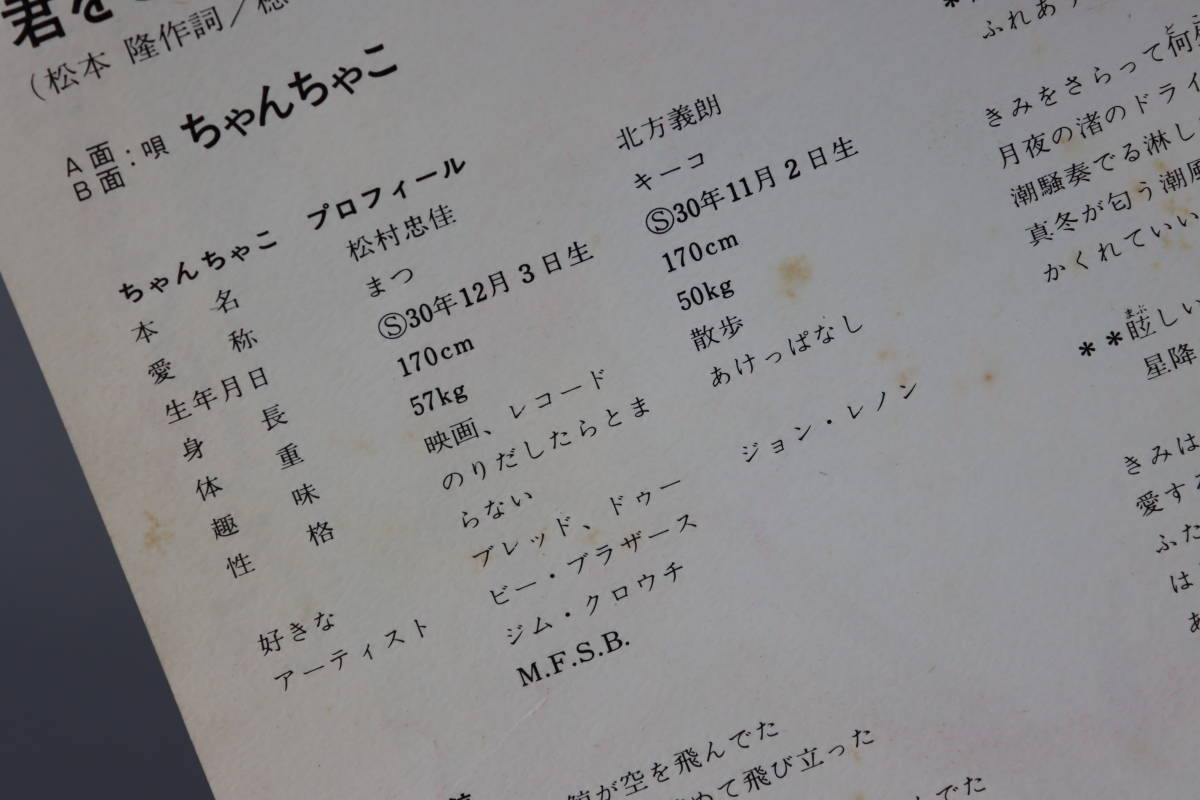 君を
(松本 隆作詞/穂
A面:唄 ちゃんちゃこ
B面
ちゃんちゃこ プロフィール
本名 松村忠佳 北方義朗
愛称 まつ キーコ
生年月日 Ⓢ30年12月3日生 Ⓢ30年11月2日生
身長 170cm 170cm
体重 57kg 50kg
趣味 映画、レコード 散歩
性格 のりだしたらとま あけっぱなし
らない
好きな ブレッド、ドゥー ジョン・レノン
アーティスト ビー・ブラザース
ジム・クロウチ
M.F.S.B.
ふれあう
きみをさらって何
月夜の渚のドライ
潮騒奏でる淋し
真冬が匂う潮風
かくれていい
**眩しい
まぶ
星降
きみは
愛する
ふた
は
あ
が空を飛んでた
めて飛び立った
んでた